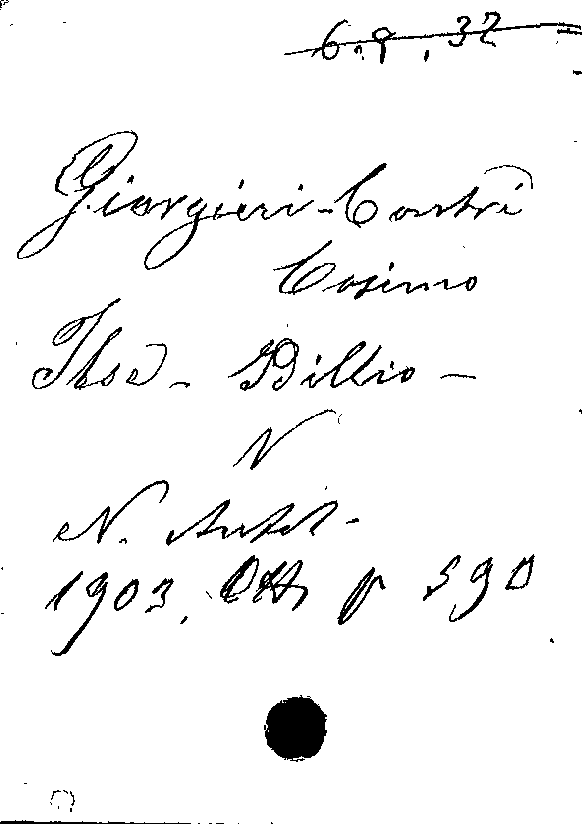 6.9.32
Giorgieri-Contri
Cosimo
Idillio -
N
N. Antol.
1903. Ott p 590